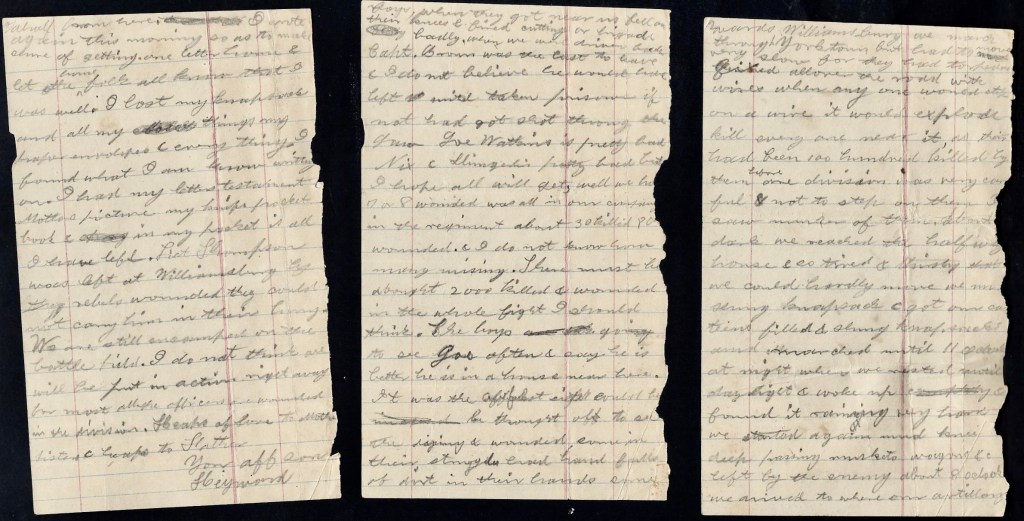 from here. I wrote
again this morning so as to make
some of getting one letter home &
let the home folks all know that I
was well. I lost my knapsack
and all my things my
paper envelopes & every thing I
found what I am now writing
on. I had my letter testament
Mottos picture my knife pocket
book & in my pocket is all
I have left. Rot Thompson
was left at Williamsburg by
they rebels wounded they could
not carry him in their hurry.
We are still encamped on the
battle field. I do not think we
will be put in action right away
for most all the officers are wounded
in the division. Heaps of love to Mother
sisters & heaps to
Your aff son
Heyward
when they got near us fell on
their knees & fired cutting or
badly, when we were driven back
Capt. Brown was the last to leave
& I do not believe he would have
left until taken prisoner if
not had got shot through the
Joe Watkins is pretty bad
Nix & pretty bad but
I hope all will get well we had
7 or 8 wounded was all in our company
in the regiment about 30 killed 80
wounded. & I do not know how
many missing. There must be
about 2000 killed & wounded
in the whole fight I should
think. The boys going
to see often & say he is
better he is in a house near here.
It was the sight could be
be brought to see
the dying & wounded some in
their struggle had hand fulls
of dirt in their hands some
towards Williamsburg we marched
through Yorktown but had to move
very slow for they had to
all over the road with
wires when any one would step
on a wire it would explode &
kill every one near it as there
had been 100 hundred killed by
them before our division was very care
ful & not to step on them I
saw number of them. About
dark we reached the half way
house & so tired & thirsty that
we could hardly move we un
slung knapsack & got our can
teens filled & slung knapsacks
and marched until 11 o'clock
at night when we rested until
day light & woke up &
found it raining very hard
we started again mud knee
deep passing muskets wagons &c
left by the enemy about 8 o'clock
we arrived to where our artillery